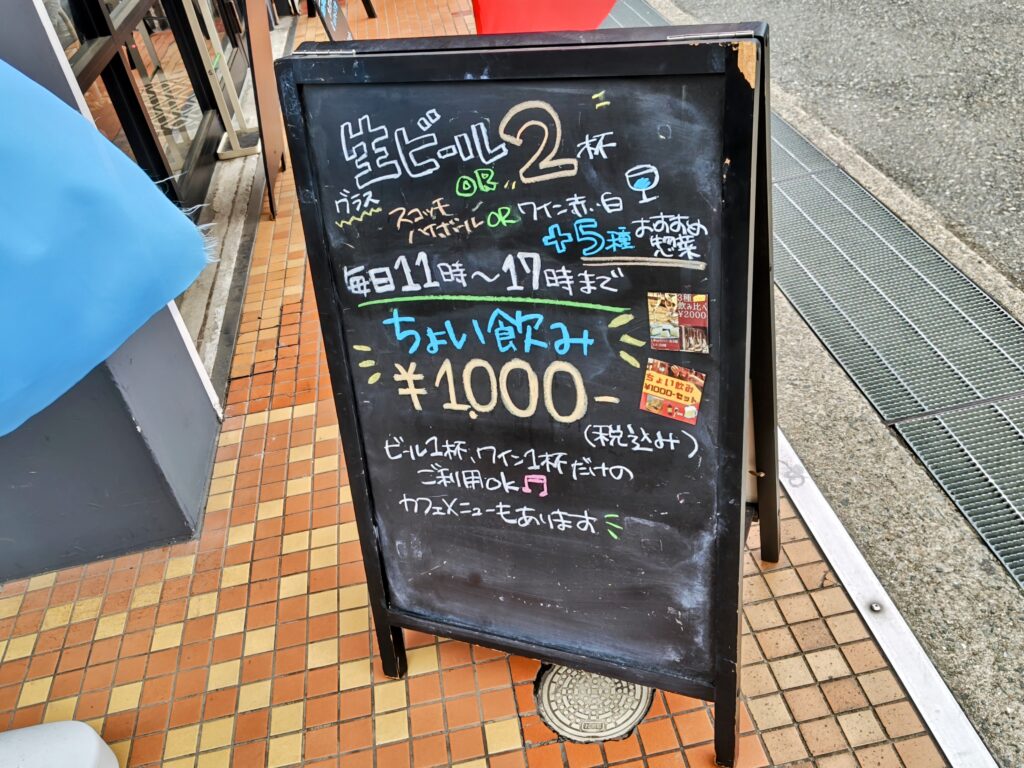 生ビール2杯
グラス OR
スコッチ
ハイボール OR ワイン赤い白
+5種 おすすめ
惣菜
毎日11時〜17時まで
ちょい飲み
¥1,000-
(税込み)
ビール1杯、ワイン1杯だけの
ご利用OK
カフェメニューもあります
3種
飲み比べ
¥2000
ちょい飲み
¥1000-セット